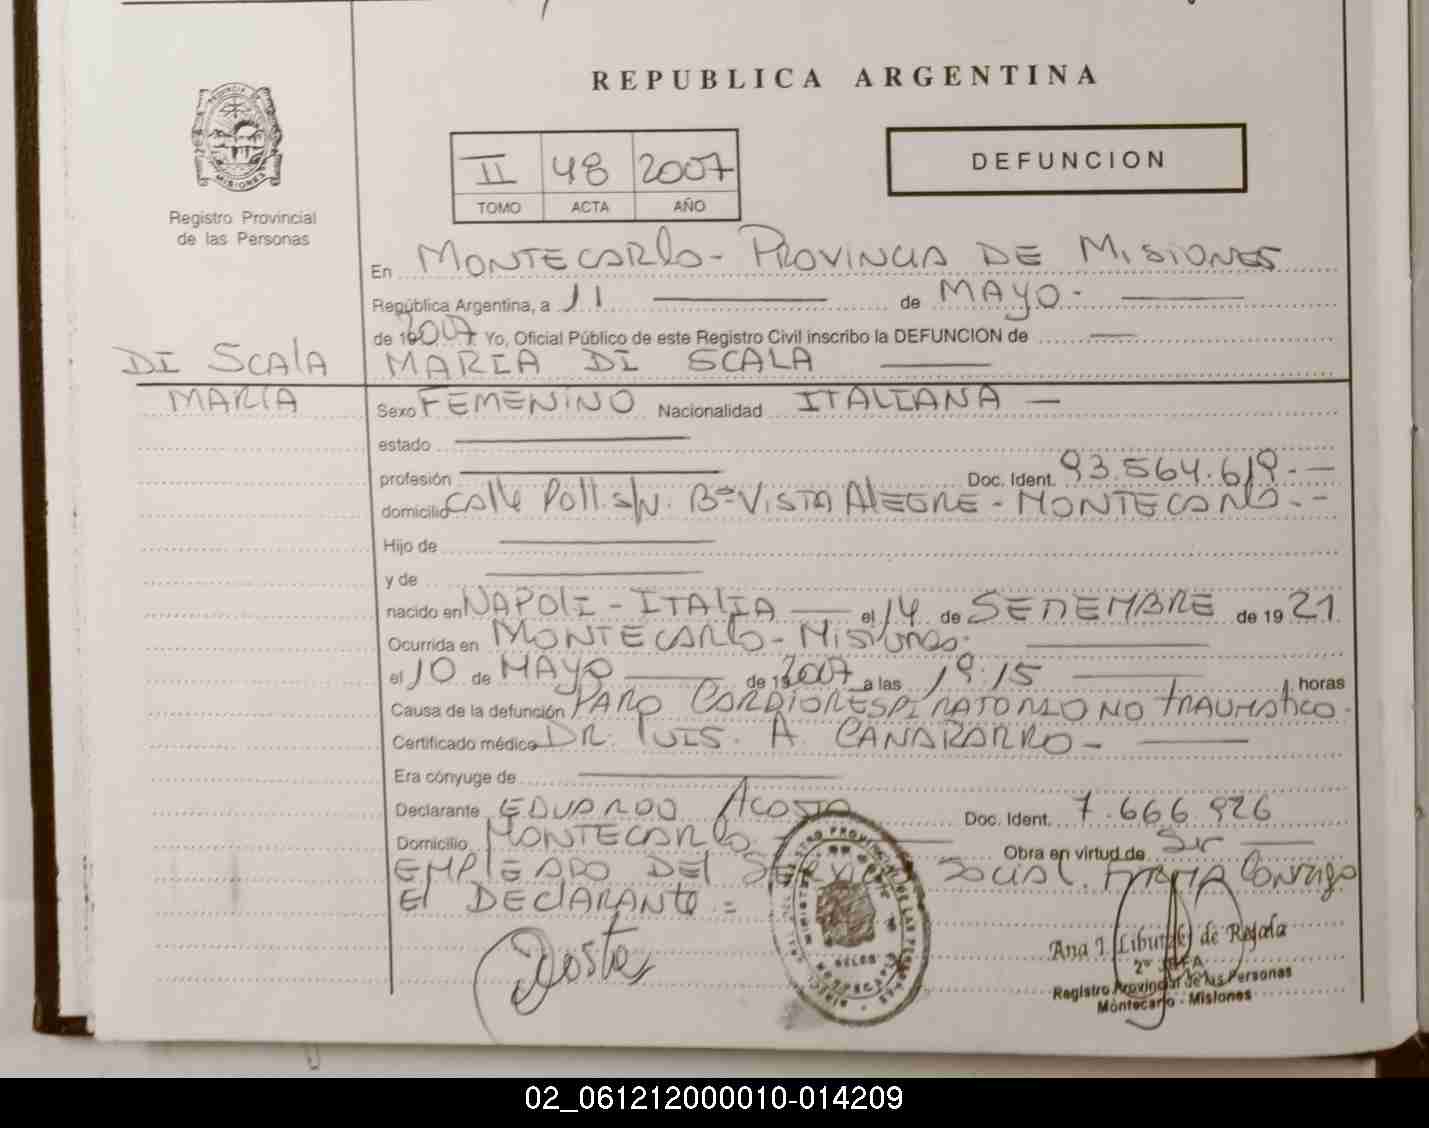 REPUBLICA ARGENTINA
PROVINCIA DE
MISIONES
Registro Provincial
de las Personas
II 48 2007
TOMO ACTA AÑO
DEFUNCION
En MONTECARLO - PROVINCIA DE MISIONES
República Argentina, a 11 de MAYO -
de 2007 Yo, Oficial Público de este Registro Civil inscribo la DEFUNCION de
DI SCALA
MARIA DI SCALA
MARÍA
Sexo FEMENINO Nacionalidad ITALIANA -
estado
profesión Doc. Ident. 93.564.619.-
domicilio Calle Poll. s/N. Bº VISTA AlEGRE - MONTECARLO.-
Hijo de
y de
nacido en NAPOLI - ITALIA el 14 de SETIEMBRE de 19 21.
Ocurrida en MONTECARLO - MISIONES.
el 10 de MAYO de 2007 a las 19.15 horas
Causa de la defunción PARO CARDIORESPIRATORIO NO TRAUMATICO.
Certificado médico DR. LUIS. A. -
Era cónyuge de
Declarante EDUARDO ACOSTA Doc. Ident. 7.666.926
Domicilio MONTECARLO - Obra en virtud de Ser
EMPLEADO DEL SERVICIO SOCIAL. FIRMA Conmigo
El DEClARANTE =
Acosta
Ana I. de
2º JEFA
Registro Provincial de las Personas
Montecarlo - Misiones
02_061212000010-014209